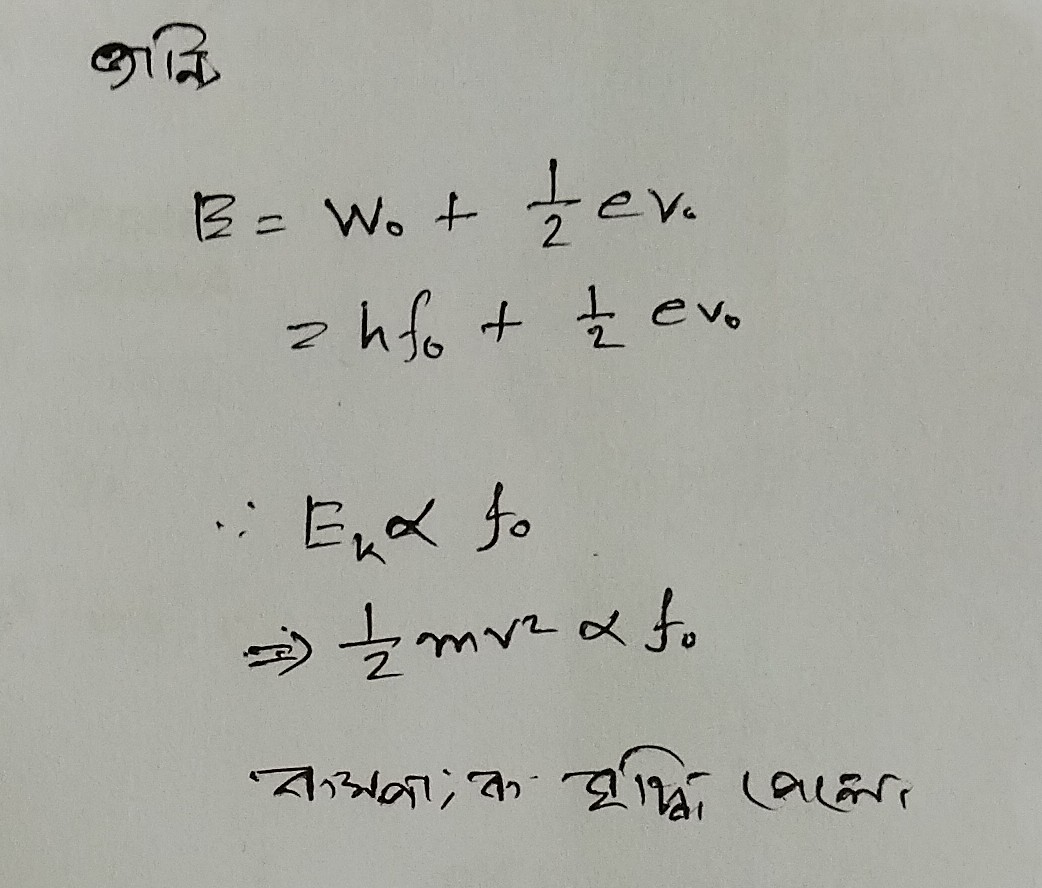 জানি
E = W₀ + 1/2 ev₀
= hf₀ + 1/2 ev₀
∴ Eₖ ∝ f₀
⇒ 1/2 mv² ∝ f₀
বৃদ্ধি পেলে